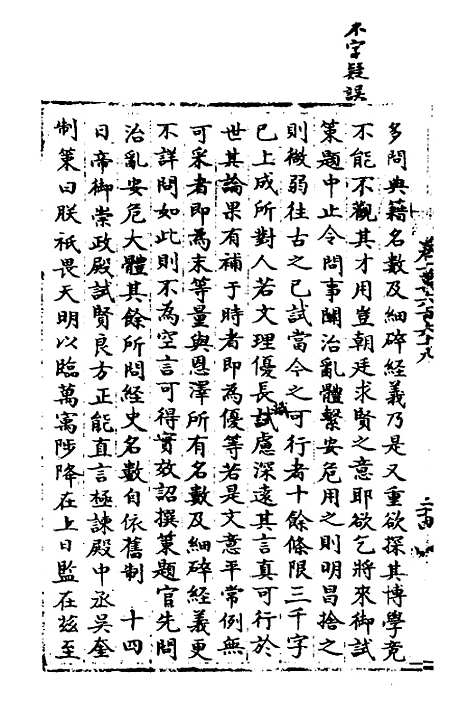 不字疑誤
多問典籍名數及細碎經義乃是又重欲探其博學竟
不能不觀其才用豈朝廷求賢之意耶欲乞將來御試
策題中止令問事關治亂體繫安危用之則明昌捨之
則微弱往古之已試當今之可行者十餘條限三千字
已上成所對人若文理優長識慮深遠其言真可行於
世其論果有補于時者即為優等若是文意平常例無
可采者即為末等量與恩澤所有名數及細碎經義更
不詳問如此則不為空言可得實效詔撰策題官先問
治亂安危大體其餘所問經史名數自依舊制　十四
日帝御崇政殿試賢良方正能直言極諫殿中丞吳奎
制策曰朕祇畏天明以臨萬寓陟降在上日監在玆至